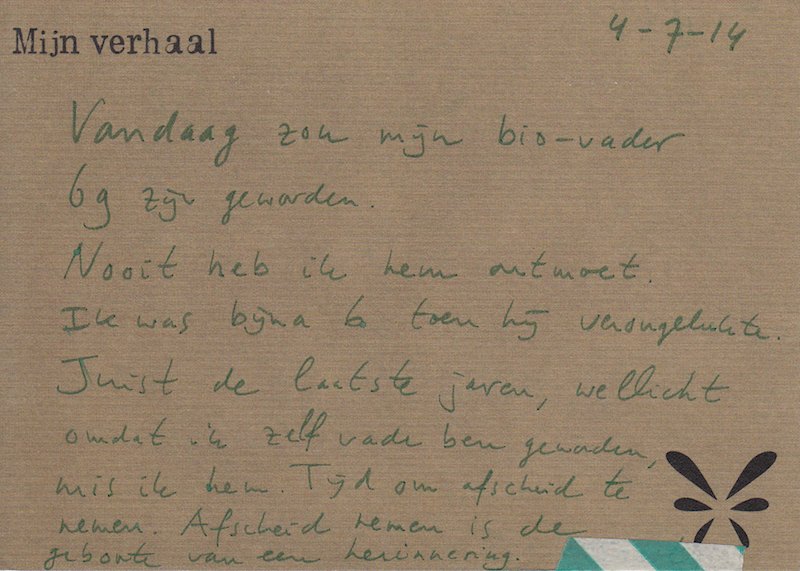 Mijn verhaal
4-7-14
Vandaag zou mijn bio-vader
69 zijn geworden.
Nooit heb ik hem ontmoet.
Ik was bijna 6 toen hij verongelukte.
Juist de laatste jaren, wellicht
omdat ik zelf vader ben geworden,
mis ik hem. Tijd om afscheid te
nemen. Afscheid nemen is de
geboorte van een herinnering.